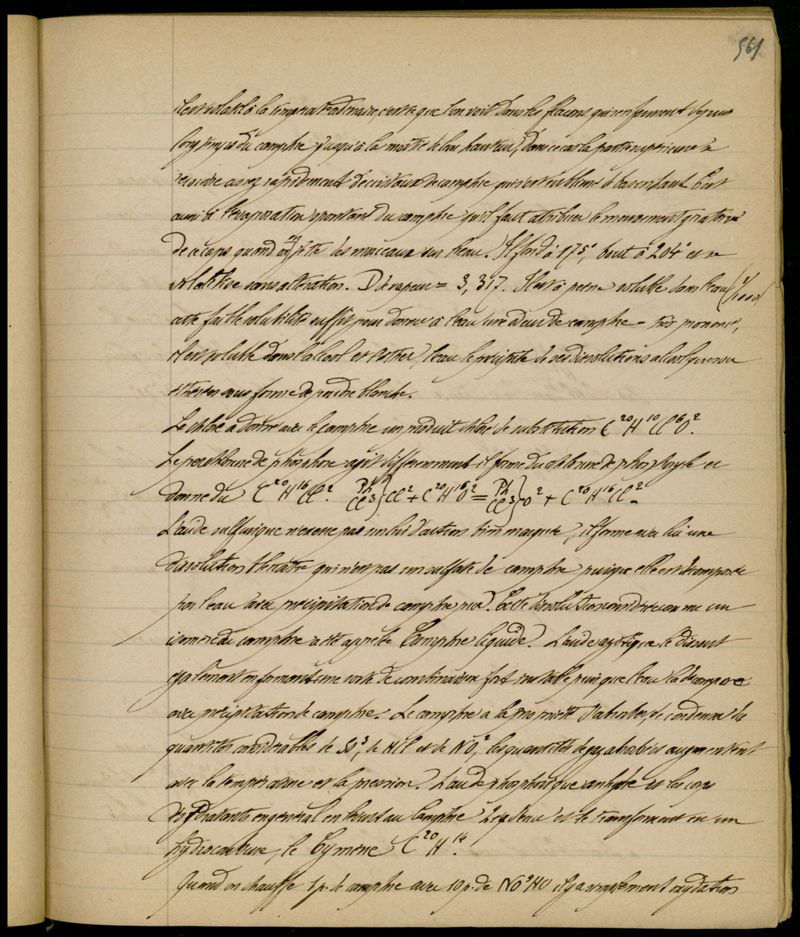 561
il est volatil à la température ordinaire, c'est ce que l'on voit dans les flacons qui renferment depuis
longtemps du camphre jusqu'à la moitié de leur hauteur, dans ce cas la partie supérieure
assez rapidement de cristaux de camphre qui s'est sublimé C'est
aussi à l'évaporation spontanée du camphre qu'il faut attribuer le mouvement giratoire
de ce corps quand on jette des morceaux sur l'eau. Il fond à 175°, bout à 204° et se
volatilise sans altération. D. de vapeur = 3,317. Il est à peine soluble dans l'eau (1/1000)
cette faible solubilité suffit pour donner à l'eau une odeur de camphre très prononcée,
il est soluble dans l'alcool et l'éther, l'eau le précipite de ses dissolutions alcooliques ou
éthérées sous forme de poudre blanche.
Le chlore a donné avec le camphre un produit chloré de substitution C²⁰H¹⁰Cl⁶O².
Le perchlorure de phosphore agit différemment il forme du chlorure de phosphoryle et
donne du C²⁰H¹⁶Cl². Ph Cl³}Cl² + C²⁰H¹⁶O² = Ph Cl³}O² + C²⁰H¹⁶Cl².
L'acide sulfurique n'exerce pas sur lui d'action bien marquée, il forme avec lui une
dissolution qui n'est pas un sulfate de camphre puisque elle est décomposée
par l'eau avec précipitation de camphre pur. Cette dissolution considérée comme un
isomère du camphre a été appelée Camphre liquide. L'acide azotique le dissout
également en formant une sorte de combinaison fort instable puisque l'eau la décompose
avec précipitation de camphre. Le camphre a la propriété d'absorber et de condenser des
quantités considérables de SO², de HCl et de NO⁴, les quantités de gaz absorbées augmentent
avec la température et la pression. L'acide phosphorique anhydre et les corps
déshydratants en général enlèvent au Camphre 2 éq. d'eau et le transforment en un
hydrocarbure, le Cymène C²⁰H¹⁴.
Quand on chauffe 1 p. de camphre avec 10 p. de NO⁵HO il y a simplement oxydation